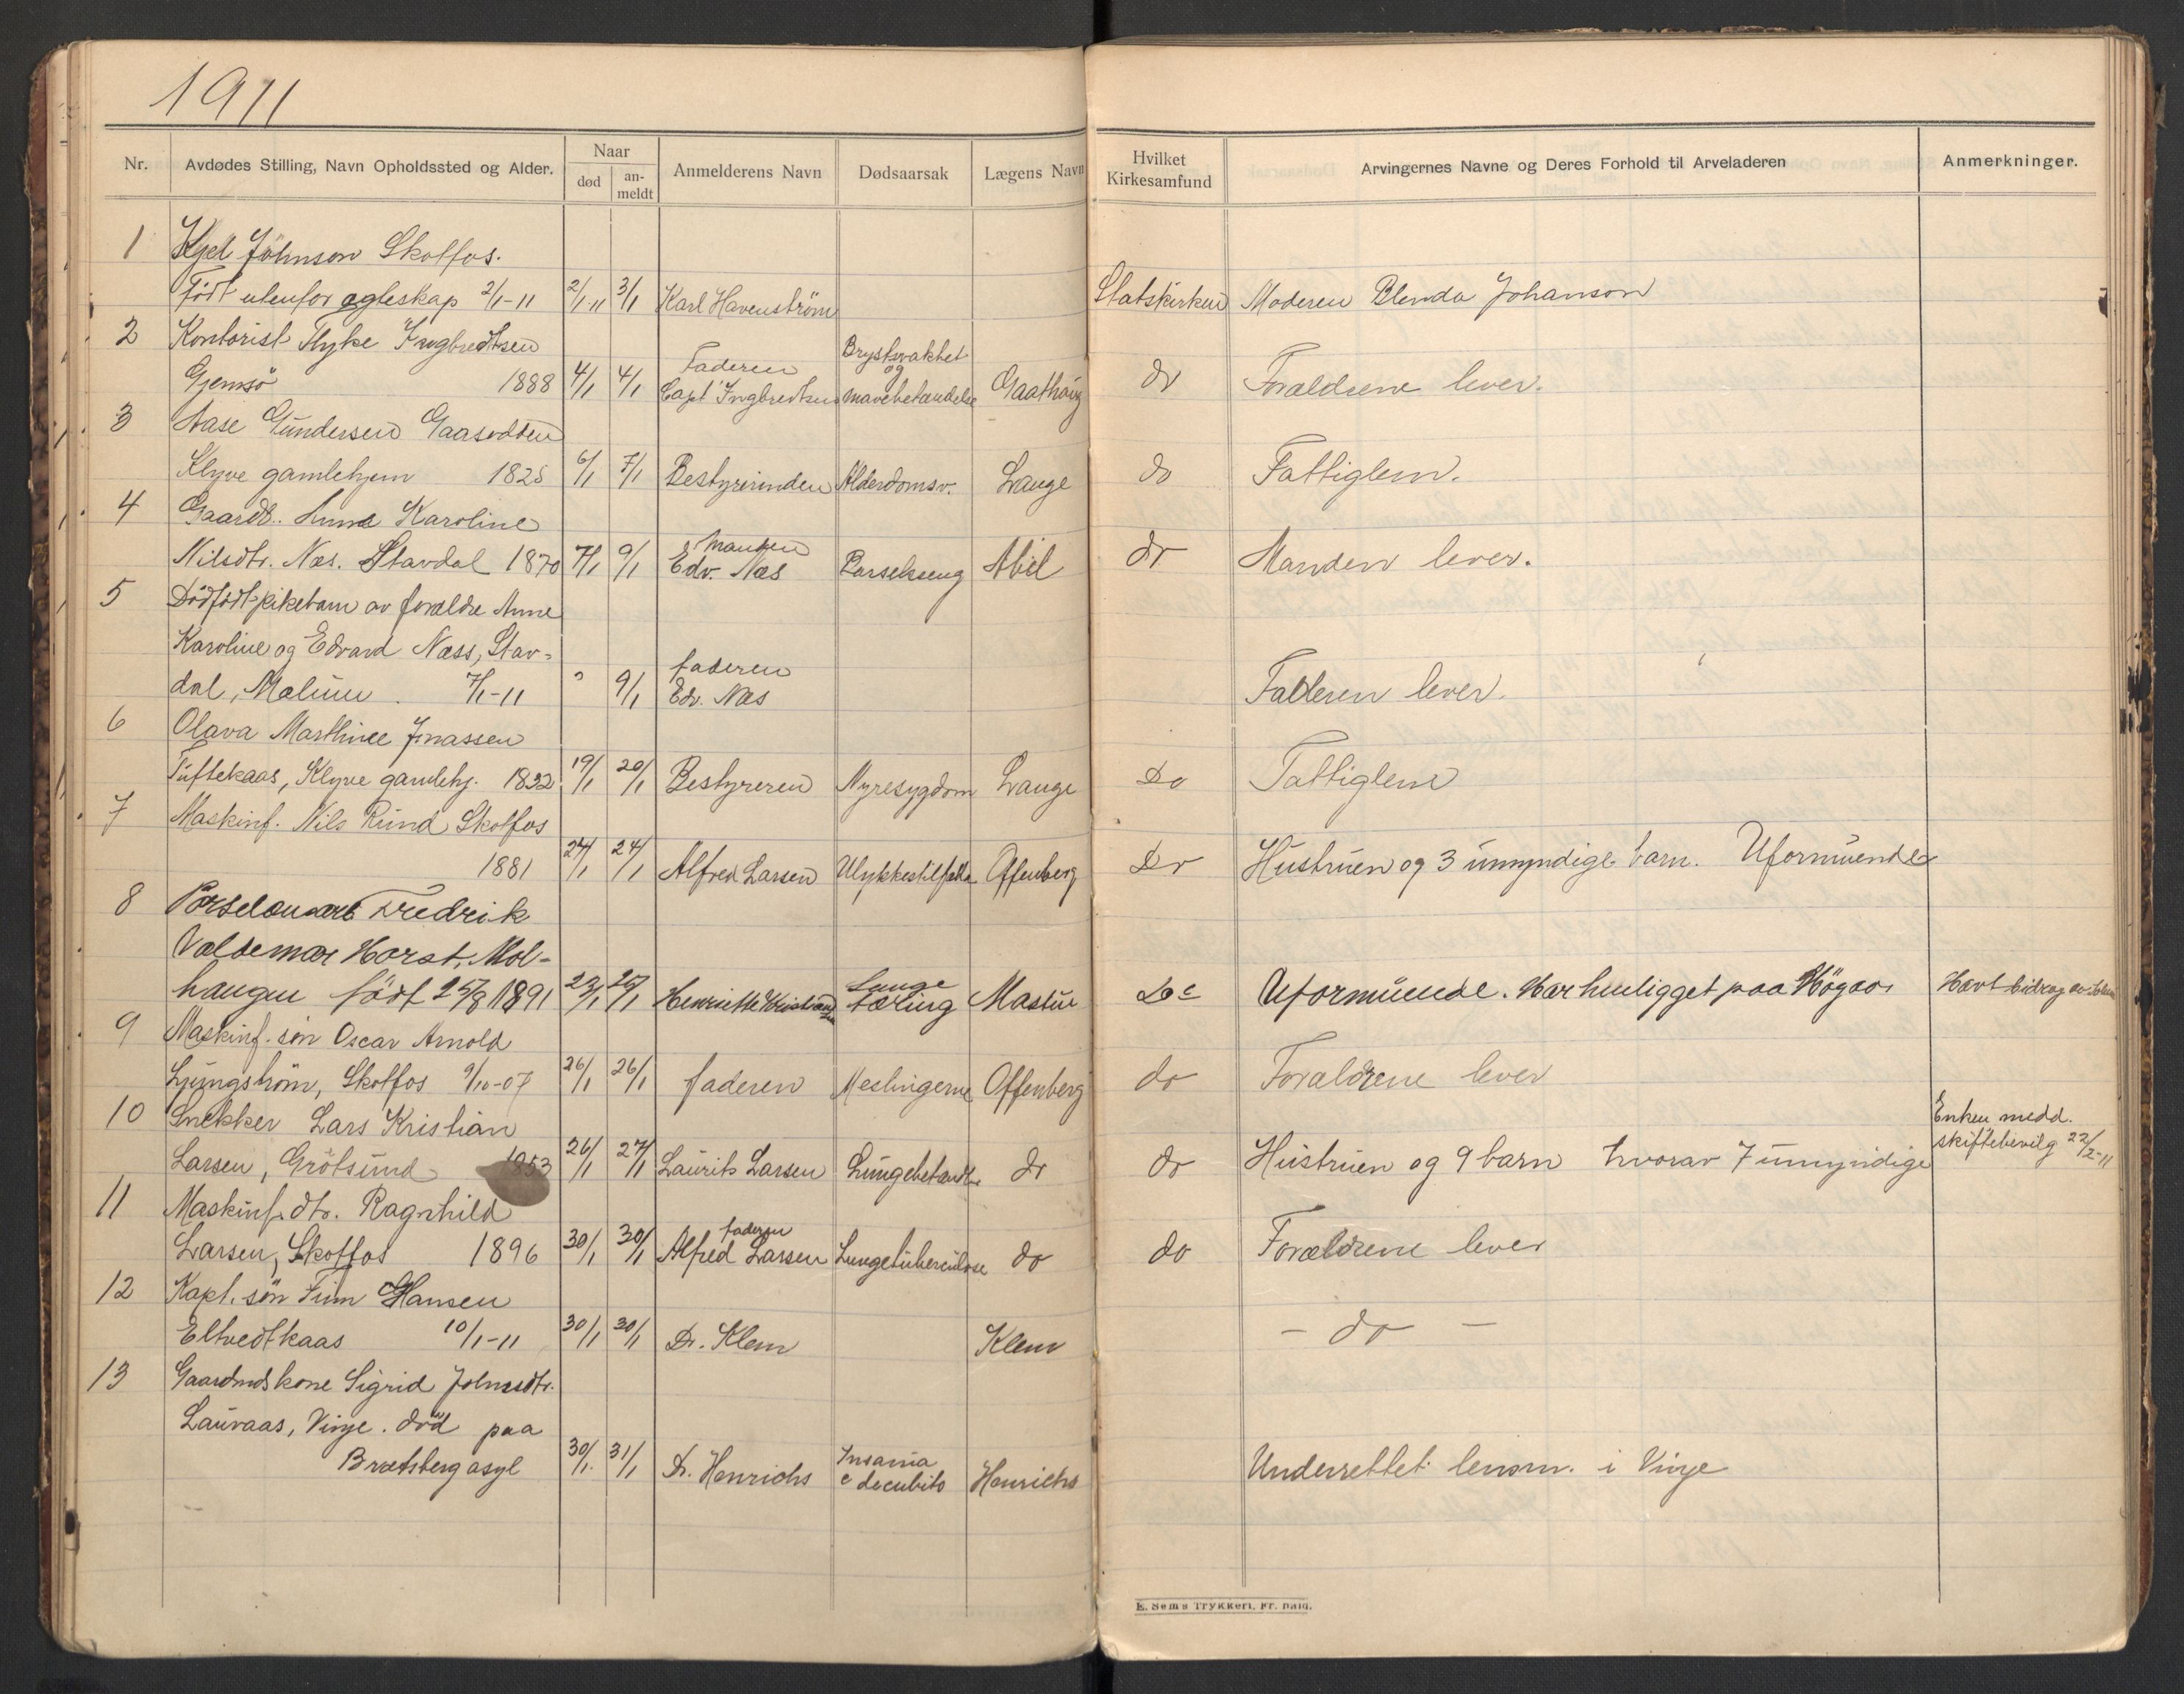 1911
Nr. Avdødes Stilling, Navn Opholdssted og Alder. Naar død an-meldt Anmelderens Navn Dødsaarsak Lægens Navn Hvilket Kirkesamfund Arvingernes Navne og Deres Forhold til Arveladeren Anmerkninger.
1 Kjel Johnson Skotfos.
Født utenfor egteskap 2/1-11 2/1-11 3/1 Karl Havenström Statskirken Moderen Blenda Johanson
2 Kontorist Thyke Ingbredtsen Brystsvakhet
Gjemsö 1888 4/1 4/1 Faderen Capt Ingbredtsen og mavebetændelse Gaathaug do Forældrene lever.
3 Aase Gundersen Gaasodden
Klyve gamlehjem 1825 6/1 7/1 Bestyrerinden Alderdomsv. Lange do Fattiglem.
4 Gaardb. Anne Karoline
Nilsdtr. Næs. Stavdal 1870 7/1 9/1 Manden Edv. Næs Barselseng Abel do Manden lever.
5 Dödfödt pikebarn av forældre Anne
Karoline og Edvard Næss, Stav-
dal, Melum. 7/1-11 " 9/1 faderen Edv. Næs Faderen lever.
6 Olava Marthine Jonassen
Tuftekaas, Klyve gamlehj. 1832 19/1 20/1 Bestyreren Nyresygdom Lange Do Fattiglem
7 Maskinf. Nils Rund Skotfos
1881 24/1 24/1 Alfred Larsen Ulykkestilfælde Offenberg Do Hustruen og 3 umyndige barn. Uformuende
8 Porselensarb Fredrik
Valdemar Horst, Mol-
haugen født 25/8 1891 23/1 25/1 Henriette Kristiansen Lunge tæring Mastue Do Uformuende. Har henligget paa Högaas Havt bidrag av
9 Maskinf. sön Oscar Arnold
Ljungström, Skotfos 9/10-07 26/1 26/1 faderen Meslingerne Offenberg do Forældrene lever
10 Snekker Lars Kristian
Larsen, Grötsund 1853 26/1 27/1 Laurits Larsen Lungebetændelse do do Hustruen og 9 barn hvorav 7 umyndige Enken medd. skiftebevilg 22/2-11
11 Maskinf. dtr. Ragnhild
Larsen, Skotfos 1896 30/1 30/1 faderen Alfred Larsen Lungetuberculose do do Forældrene lever
12 Kapt. sön Finn Hansen
Eltvedtkaas 10/1-11 30/1 30/1 Dr. Klem Klem - do -
13 Gaardmdskone Sigrid Johnsdtr.
Lauvaas, Vinje. död paa
Bratsberg asyl 30/1 31/1 Dr. Henrichs Insania c decubito Henrichs Underrettet lensm. i Vinje
E. Sems Trykkeri, Fr. hald.